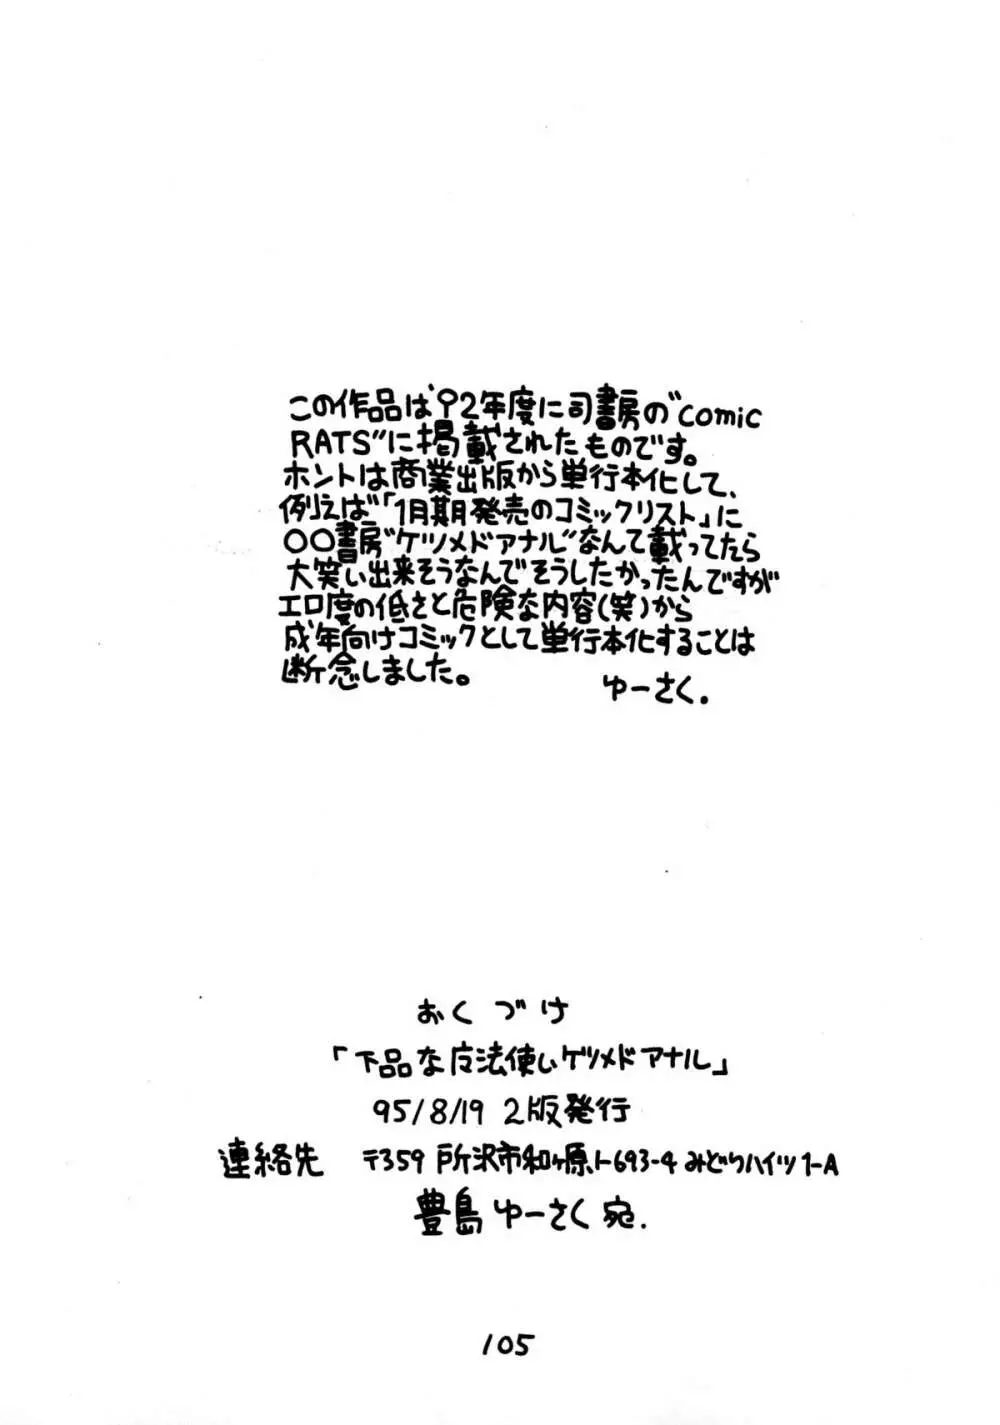 この作品は'92年度に司書房の"comic
RATS"に掲載されたものです。
ホントは商業出版から単行本化して、
例えば「1月期発売のコミックリスト」に
〇〇書房"ケツメドアナル"なんて載ってたら
大笑い出来そうなんでそうしたかったんですが
エロ度の低さと危険な内容(笑)から
成年向けコミックとして単行本化することは
断念しました。 ゆーさく.
おくづけ
「下品な魔法使いケツメドアナル」
95/8/19 2版発行
連絡先 〒359 所沢市和ヶ原1-693-4 みどりハイツ1-A
豊島ゆーさく宛.
105